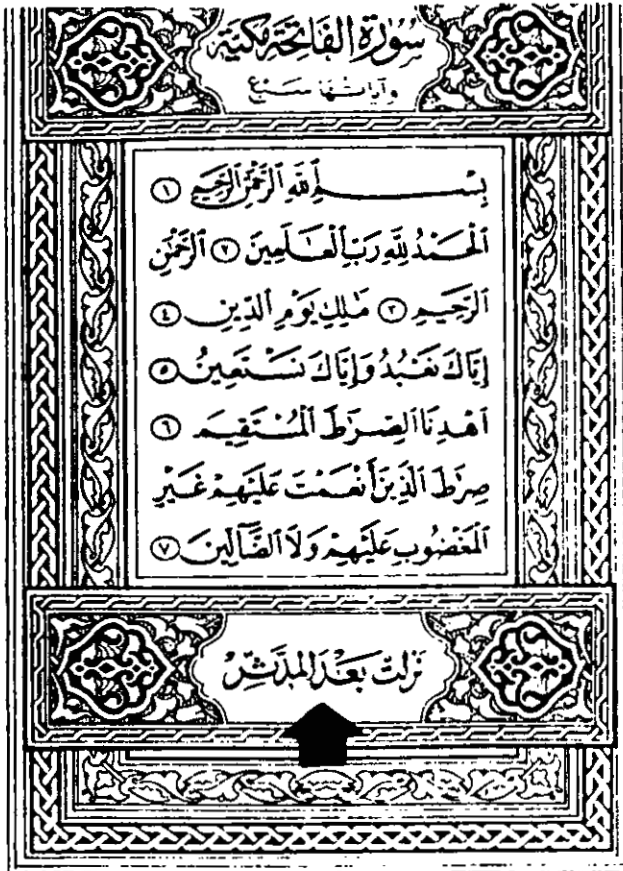 سُورَةُ الفَاتِحَةِ مَكِّيَّة
وآياتها سَبْعٌ
بِسْمِ ٱللَّهِ ٱلرَّحْمَٰنِ ٱلرَّحِيمِ ١
ٱلْحَمْدُ لِلَّهِ رَبِّ ٱلْعَٰلَمِينَ ٢ ٱلرَّحْمَٰنِ
ٱلرَّحِيمِ ٣ مَٰلِكِ يَوْمِ ٱلدِّينِ ٤
إِيَّاكَ نَعْبُدُ وَإِيَّاكَ نَسْتَعِينُ ٥
ٱهْدِنَا ٱلصِّرَٰطَ ٱلْمُسْتَقِيمَ ٦
صِرَٰطَ ٱلَّذِينَ أَنْعَمْتَ عَلَيْهِمْ غَيْرِ
ٱلْمَغْضُوبِ عَلَيْهِمْ وَلَا ٱلضَّآلِّينَ ٧
نَزَلَتْ بَعْدَ المُدَّثِّرِ